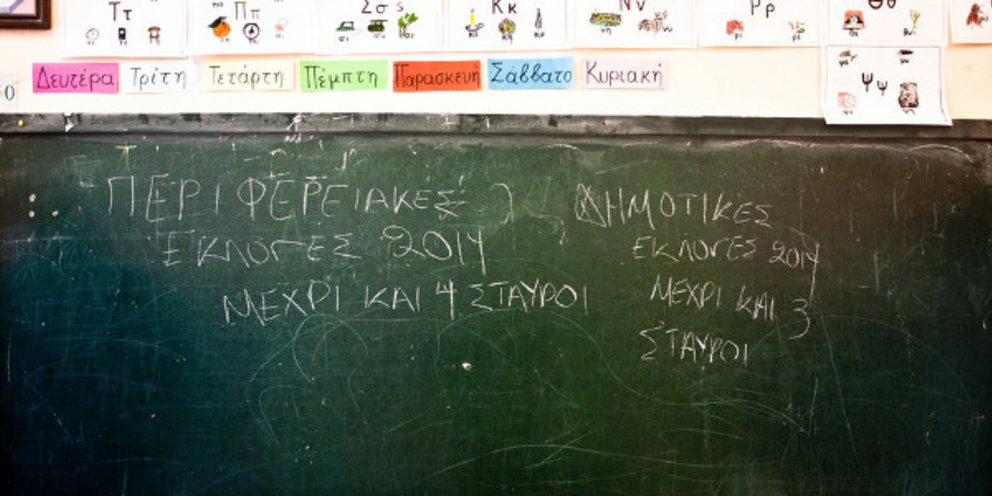 Ττ
Ππ
Σσς
Κκ
Νν
Ρρ
Θθ
Ψψ
Δευτέρα Τρίτη Τετάρτη Πέμπτη Παρασκευή Σάββατο Κυριακή
ΠΕΡΙΦΕΡΕΙΑΚΕΣ
ΕΚΛΟΓΕΣ 2014
ΜΕΧΡΙ ΚΑΙ 4 ΣΤΑΥΡΟΙ
ΔΗΜΟΤΙΚΕΣ
ΕΚΛΟΓΕΣ 2014
ΜΕΧΡΙ ΚΑΙ 3
ΣΤΑΥΡΟΙ